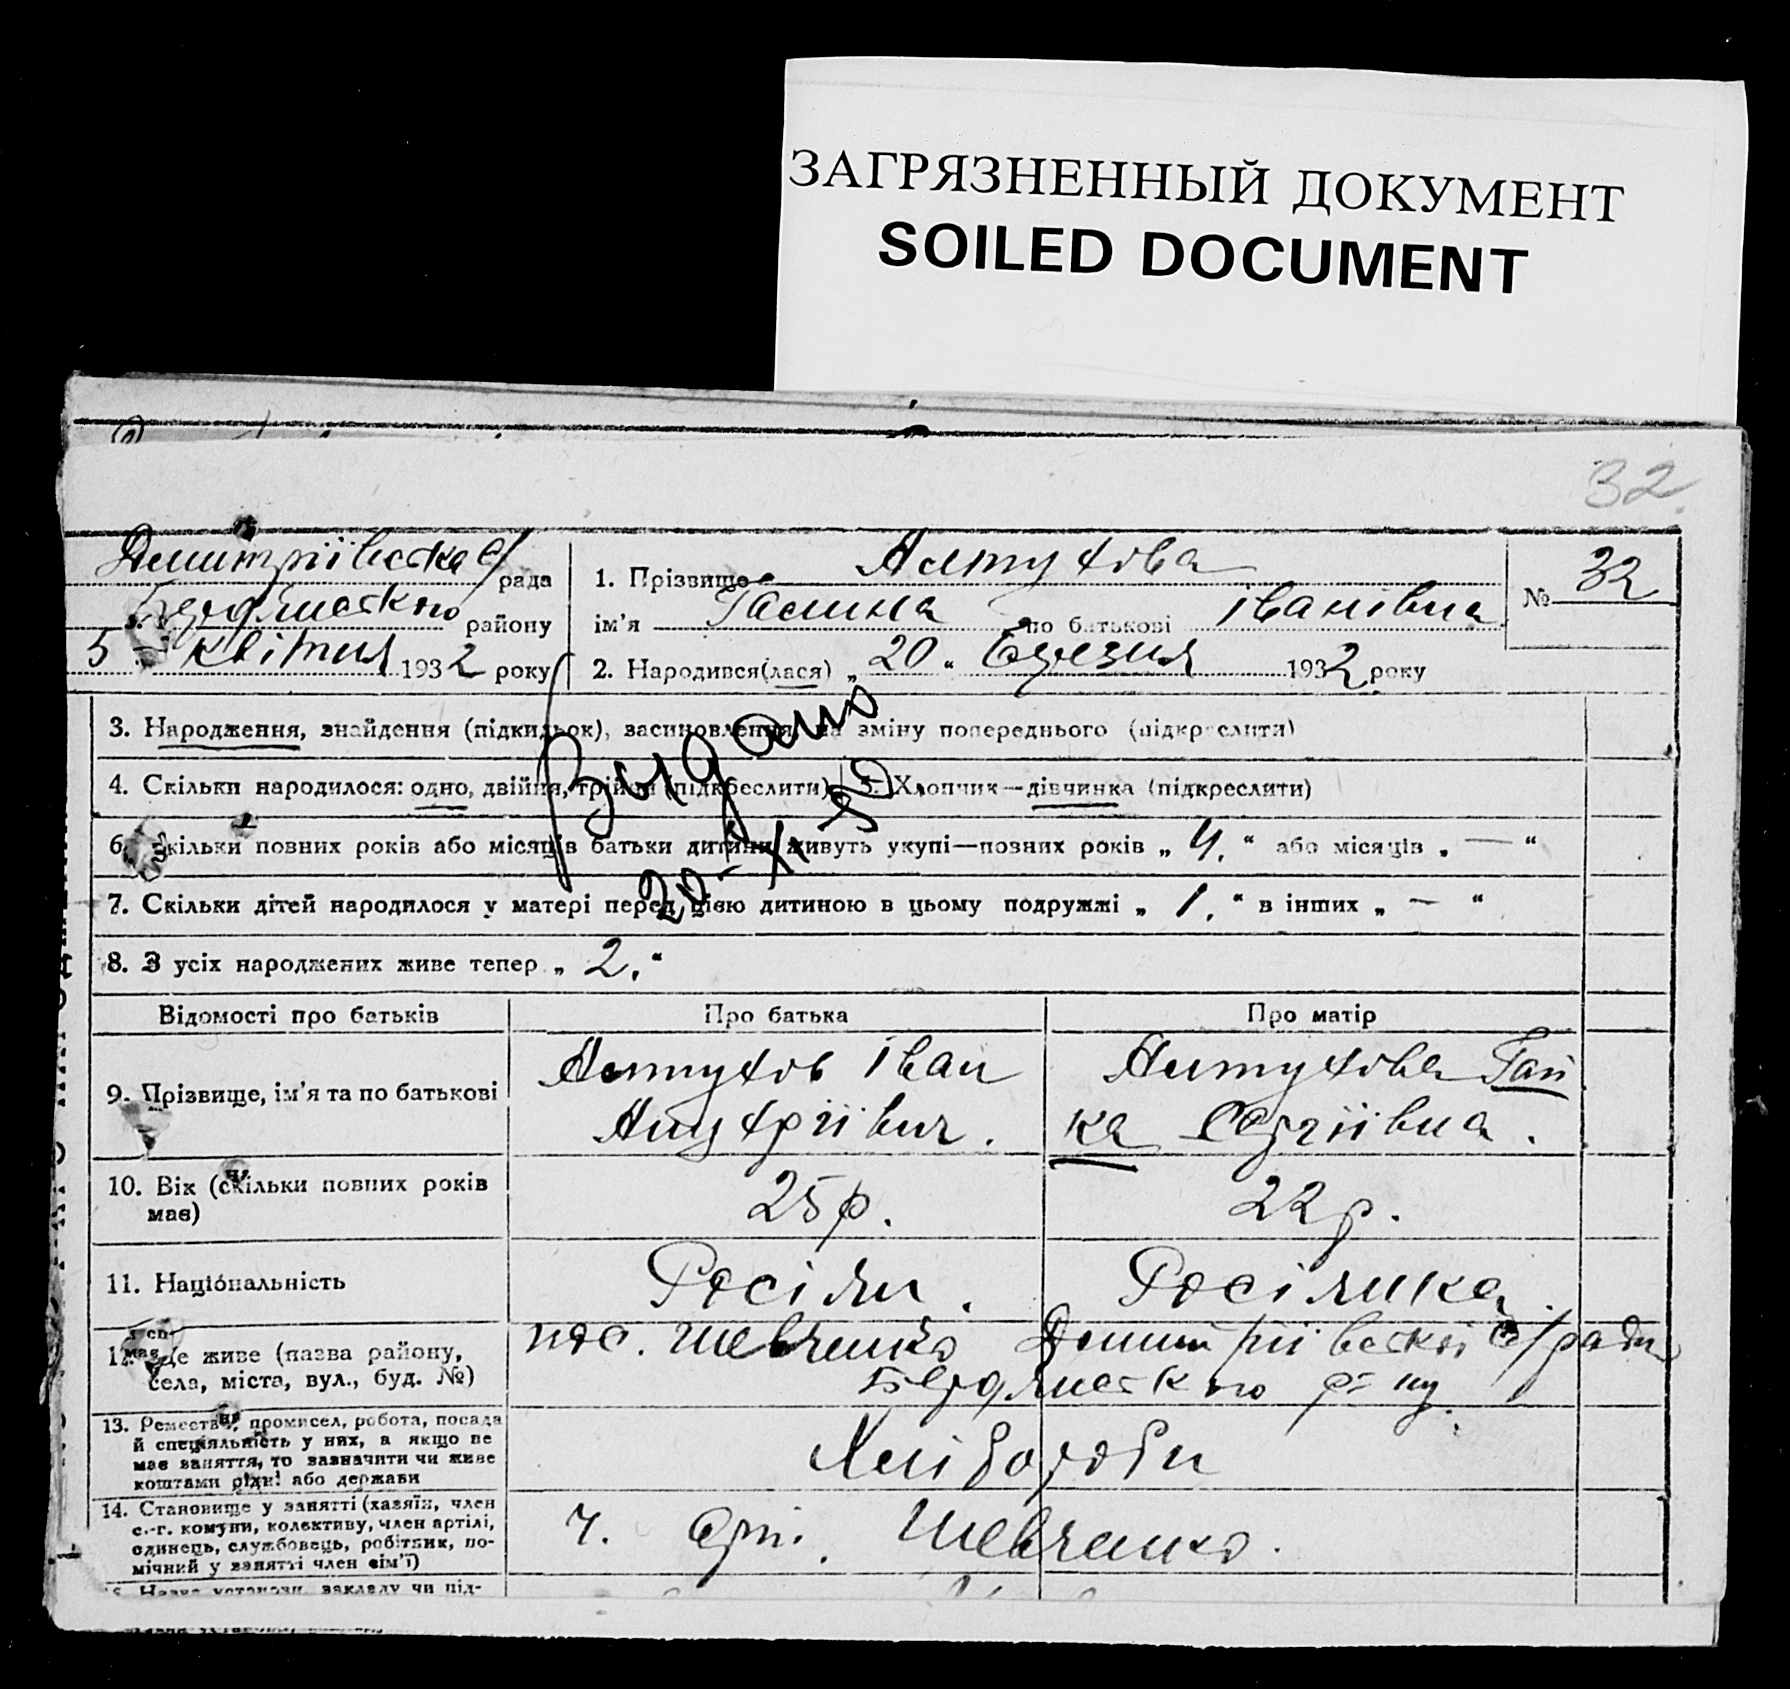 ЗАГРЯЗНЕННЫЙ ДОКУМЕНТ
SOILED DOCUMENT
32
Дмитріївська с/рада
Бердянського району
5 квітня 1932 року
1. Прізвище
ім'я Галина по батькові Іванівна
№ 32
2. Народився(лася) „ 20 “ Березня 1932 року
Видано
20-XI-50
3. Народження, знайдення (підкидьок), засиновлення, на зміну попереднього (підкреслити)
4. Скільки народилося: одно, двійня, трійня (підкреслити) 5. Хлопчик—дівчинка (підкреслити)
6. Скільки повних років або місяців батьки дитини живуть укупі—повних років „ 4. “ або місяців „ — “
7. Скільки дітей народилося у матері перед цією дитиною в цьому подружжі „ 1. “ в інших „ — “
8. З усіх народжених живе тепер „ 2. “
Відомості про батьків Про батька Про матір
9. Прізвище, ім'я та по батькові
Іван
Ган
ка Сергіівна.
10. Вік (скільки повних років
має)
25 р. 22 р.
11. Національність Росіян. Росіянка.
12. Де живе (назва району,
села, міста, вул., буд. №)
пос. Шевченко Дмитріївської с/ради
Бердянського р-ну
13. Ремество, промисел, робота, посада
й спеціяльність у них, а якщо не
має заняття, то зазначити чи живе
коштами рідні або держави
Хлібороби
14. Становище у занятті (хазяїн, член
с.-г. комуни, колективу, член артілі,
одинець, службовець, робітник, по-
мічний у занятті член сім'ї)
Ч. арт. Шевченко.
15. Назва установи, закладу чи під-